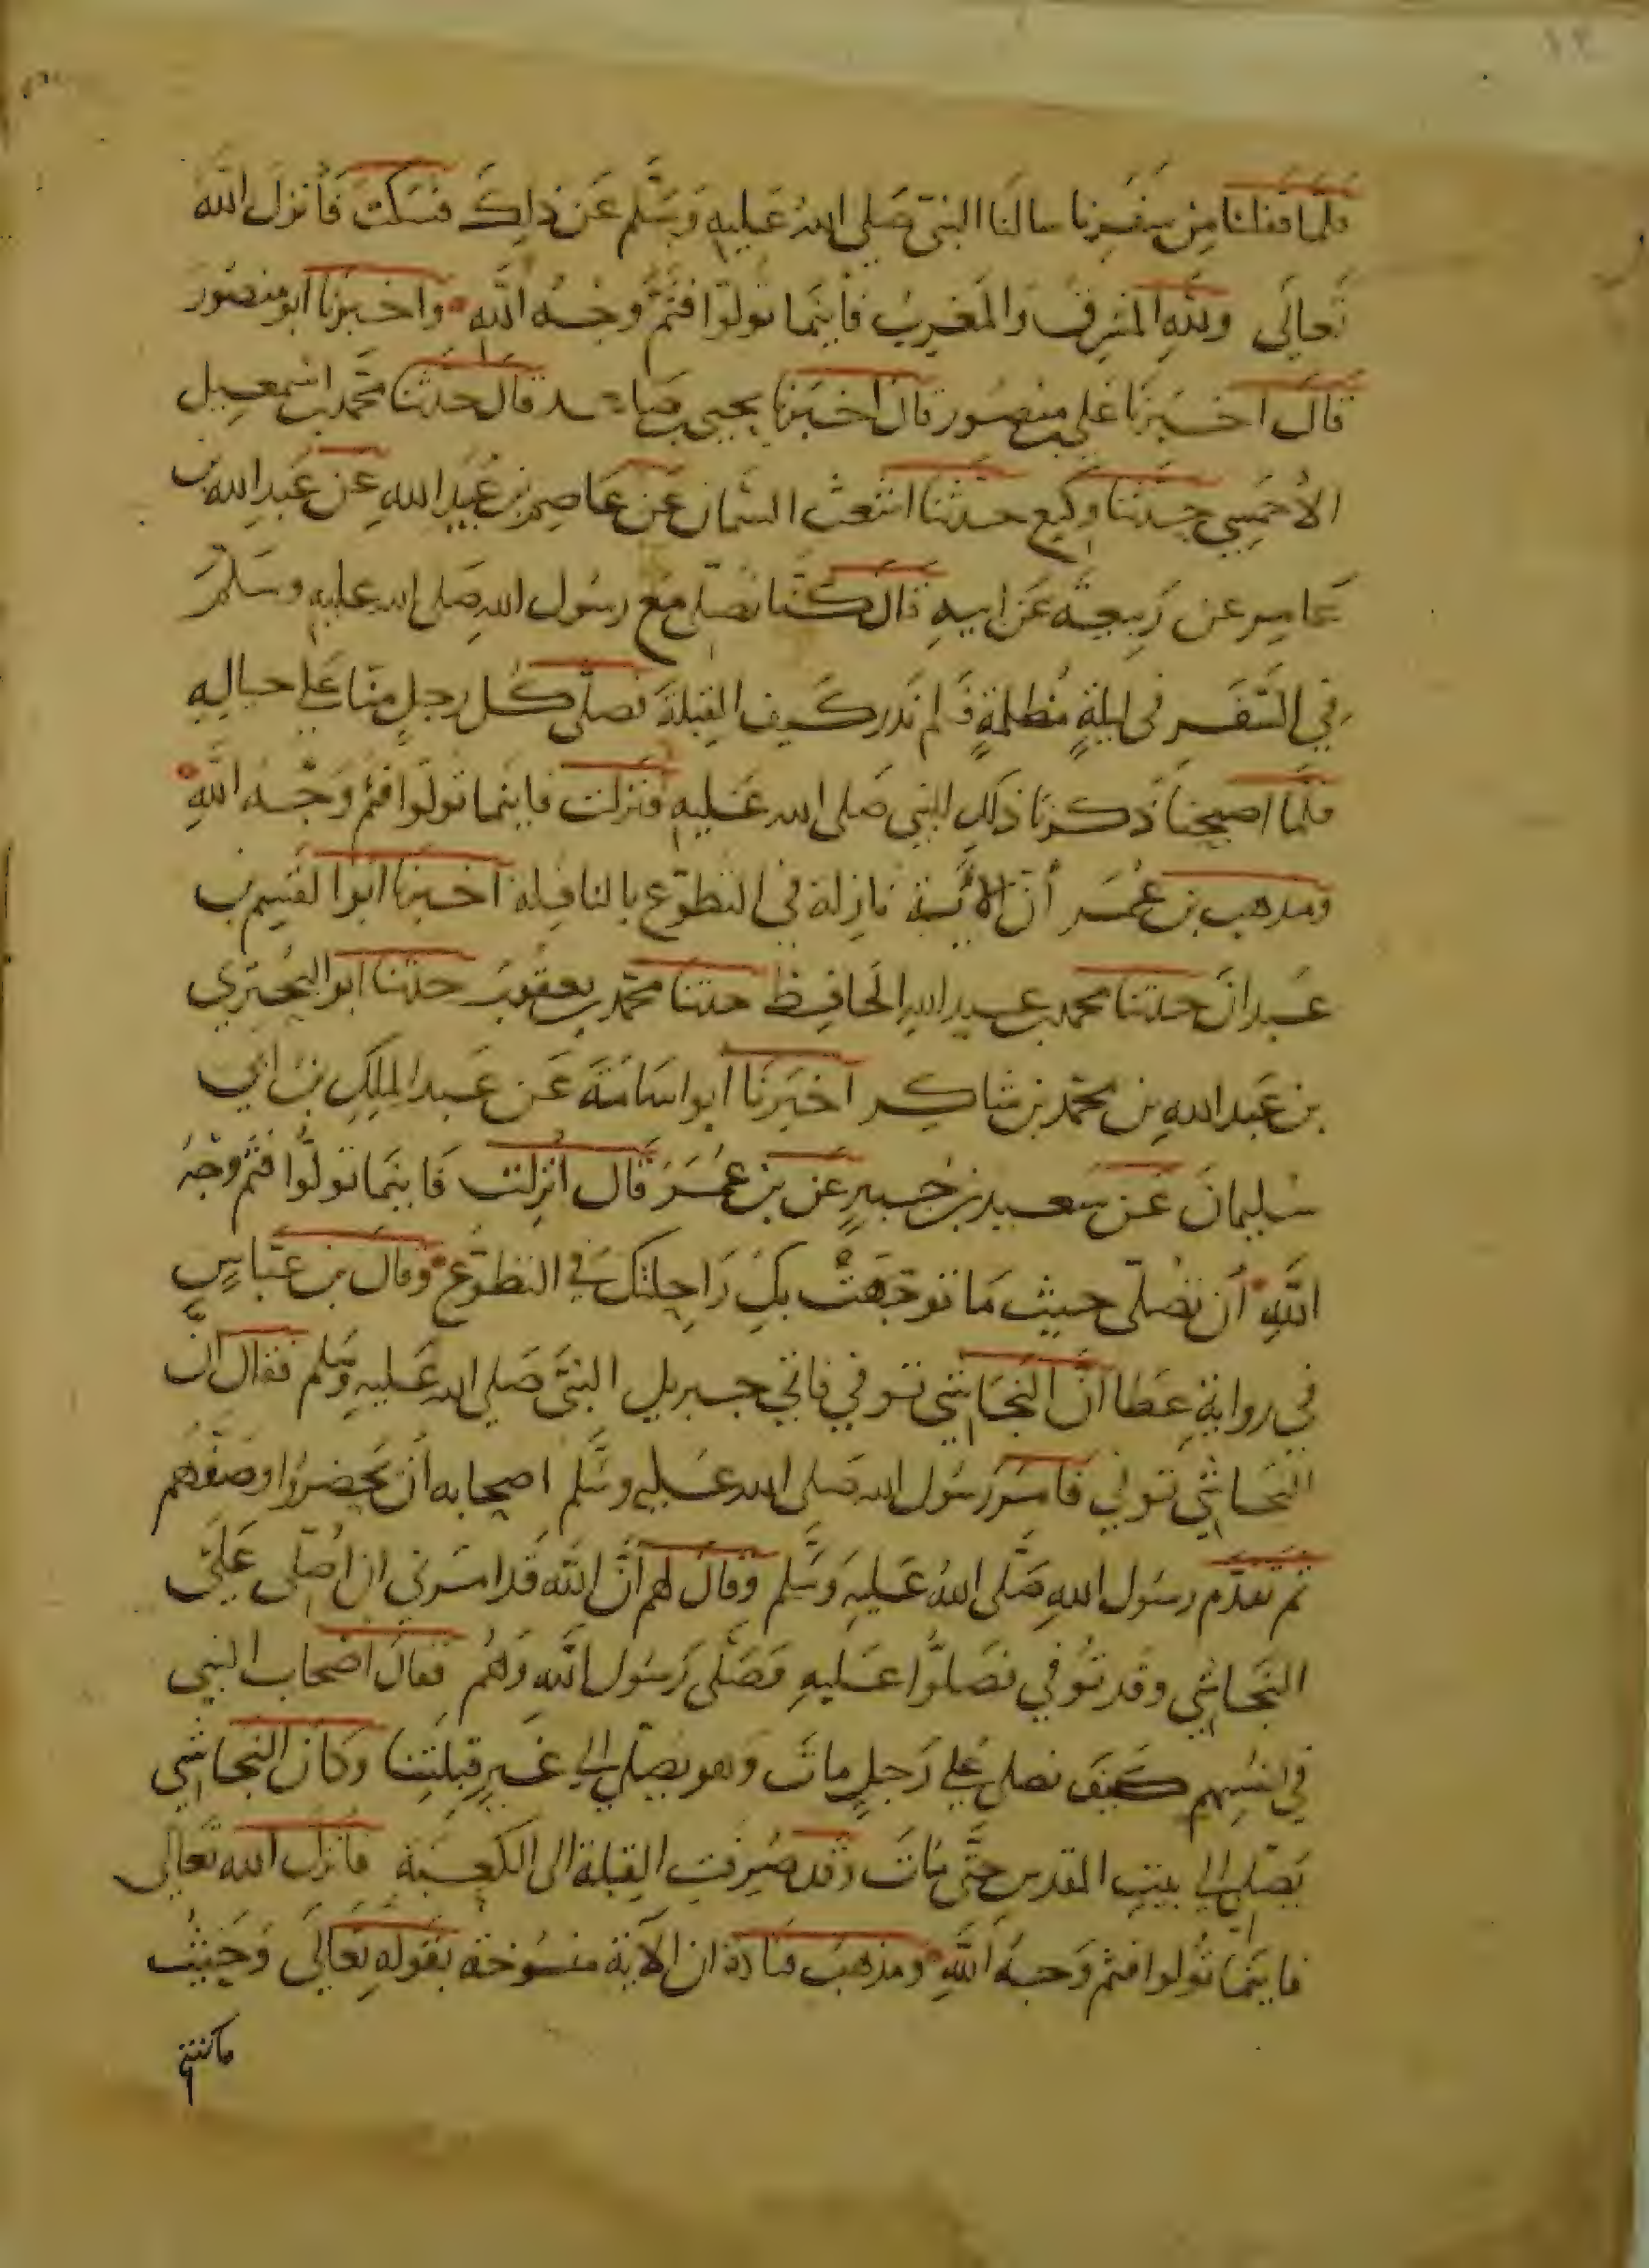 فلما قفلنا مِن سَفَرِنا سالنا النبىّ صَلى اللهُ عَليهِ وَسَلّم عَن ذلِكَ فسَكتَ فَأنزلَ اللّٰهُ
تَعالَى وللّٰهِ المَشرِقُ وَالمَغرِبُ فأينَما تولوّا فثَمَّ وَجْهُ اللّٰهِ واخبَرنا ابو منصُور
قالَ اخبَرنا على بن منصُور قال اخبَرنا يحيى بن صاعد قال حدثنا محمّد بن اسمعيل
الأحمَسِى حدثنا وكيع حدثنا اشعث السمان عَن عَاصِم بن عُبَيد اللهِ عَن عَبدِ الله بن
عَامِر عن رَبيعَة عَن ابيهِ قال كنا نصَلى مَع رسُول اللهِ صَلى الله عليهِ وسَلمَ
فى السَّفَرِ فى ليلةٍ مُظلمةٍ فَلم نَدر كَيف القِبلةَ فصَلى كُل رجلٍ منا عَلى حيالِهِ
فلمّا اصبحنا ذكرنا ذلِك للنبى صَلى الله عَليهِ فنزلت فاينما تولّوا فثم وَجْهُ اللّٰهِ
ومذهب بن عُمَر أنّ الآية نازلة فى التطوّع بالنافِلة اخبرنا ابوا القسِم بن
عَبدانَ حدثنا محمد بن عبد اللهِ الحافِظ حدثنا محمّد بن يعقُوبَ حدثنا ابو البحترى
بن عَبد اللهِ بن محمّد بن شاكِر اخبَرنَا ابو اسَامَةَ عَن عَبد الملِكِ بن أبى
سُليمانَ عَن سَعيد بن جُبيرٍ عَن بن عُمَرَ قال انزلت فَاينَما تولُّوا فثَمّ وَجهُ
اللّٰهِ أن تصُلّى حيث مَا توجّهَتْ بكَ رَاحِلتكَ فى التطوّع وقال بن عَبّاسٍ
فى رواية عَطا انَّ النجَاشى توفى فاتى جبريل النبىَّ صَلى الله عَليهِ وسَلم فقال ان
النجَاشى توفى فامَر رسُول الله صَلى الله عَليهِ وسَلّم اصحابه أن يَحضروا وصَفّهُم
ثم تقدّم رسُول اللهِ صَلّى اللهُ عَليهِ وَسَلّم وقال لهم انّ اللّٰه قد امرنى ان اصَلى عَلَى
النجَاشِى وقد توُفى فصَلوُّا عَليهِ فصَلّى رَسُول اللّٰهِ وَهُم فقال اصْحاب النبى
فى انفسِهِم كيَف نصلى عَلى رَجلٍ ماتَ وهو يصَلّى الى غَيرِ قِبلَتِنا وكان النجاشى
يَصَلى الى بيتِ المقدسِ حتّى مَاتَ وقد صُرِفتِ القِبلة الى الكعبَة فانزلَ اللّٰه تعَالى
فاينَما تُولوا فثم وَجهُ اللّٰهِ ومذهبُ قتادة ان الآية منسُوخة بقولهِ تعَالَى وَحَيثُ
ما كنتم